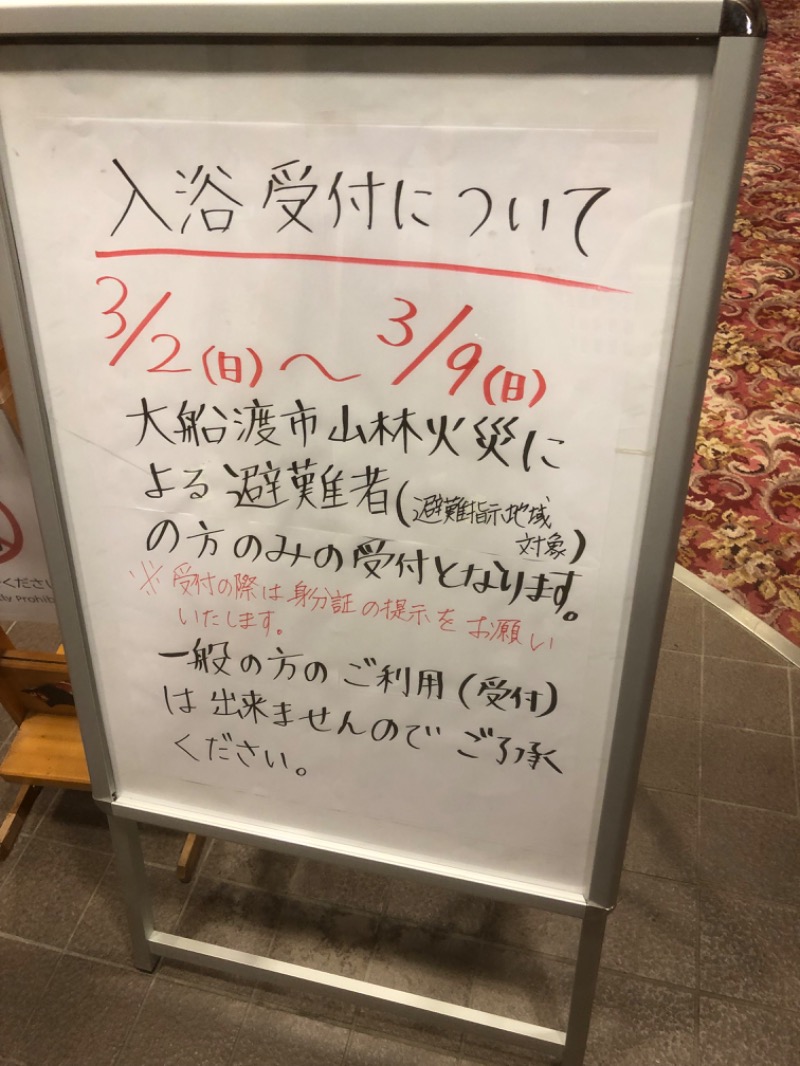 入浴受付について
3/2(日)～3/9(日)
大船渡市山林火災に
よる避難者(避難指示地域
対象)
の方のみの受付となります。
※受付の際は身分証の提示をお願い
いたします。
一般の方のご利用(受付)
は出来ませんのでご了承
ください。
ください